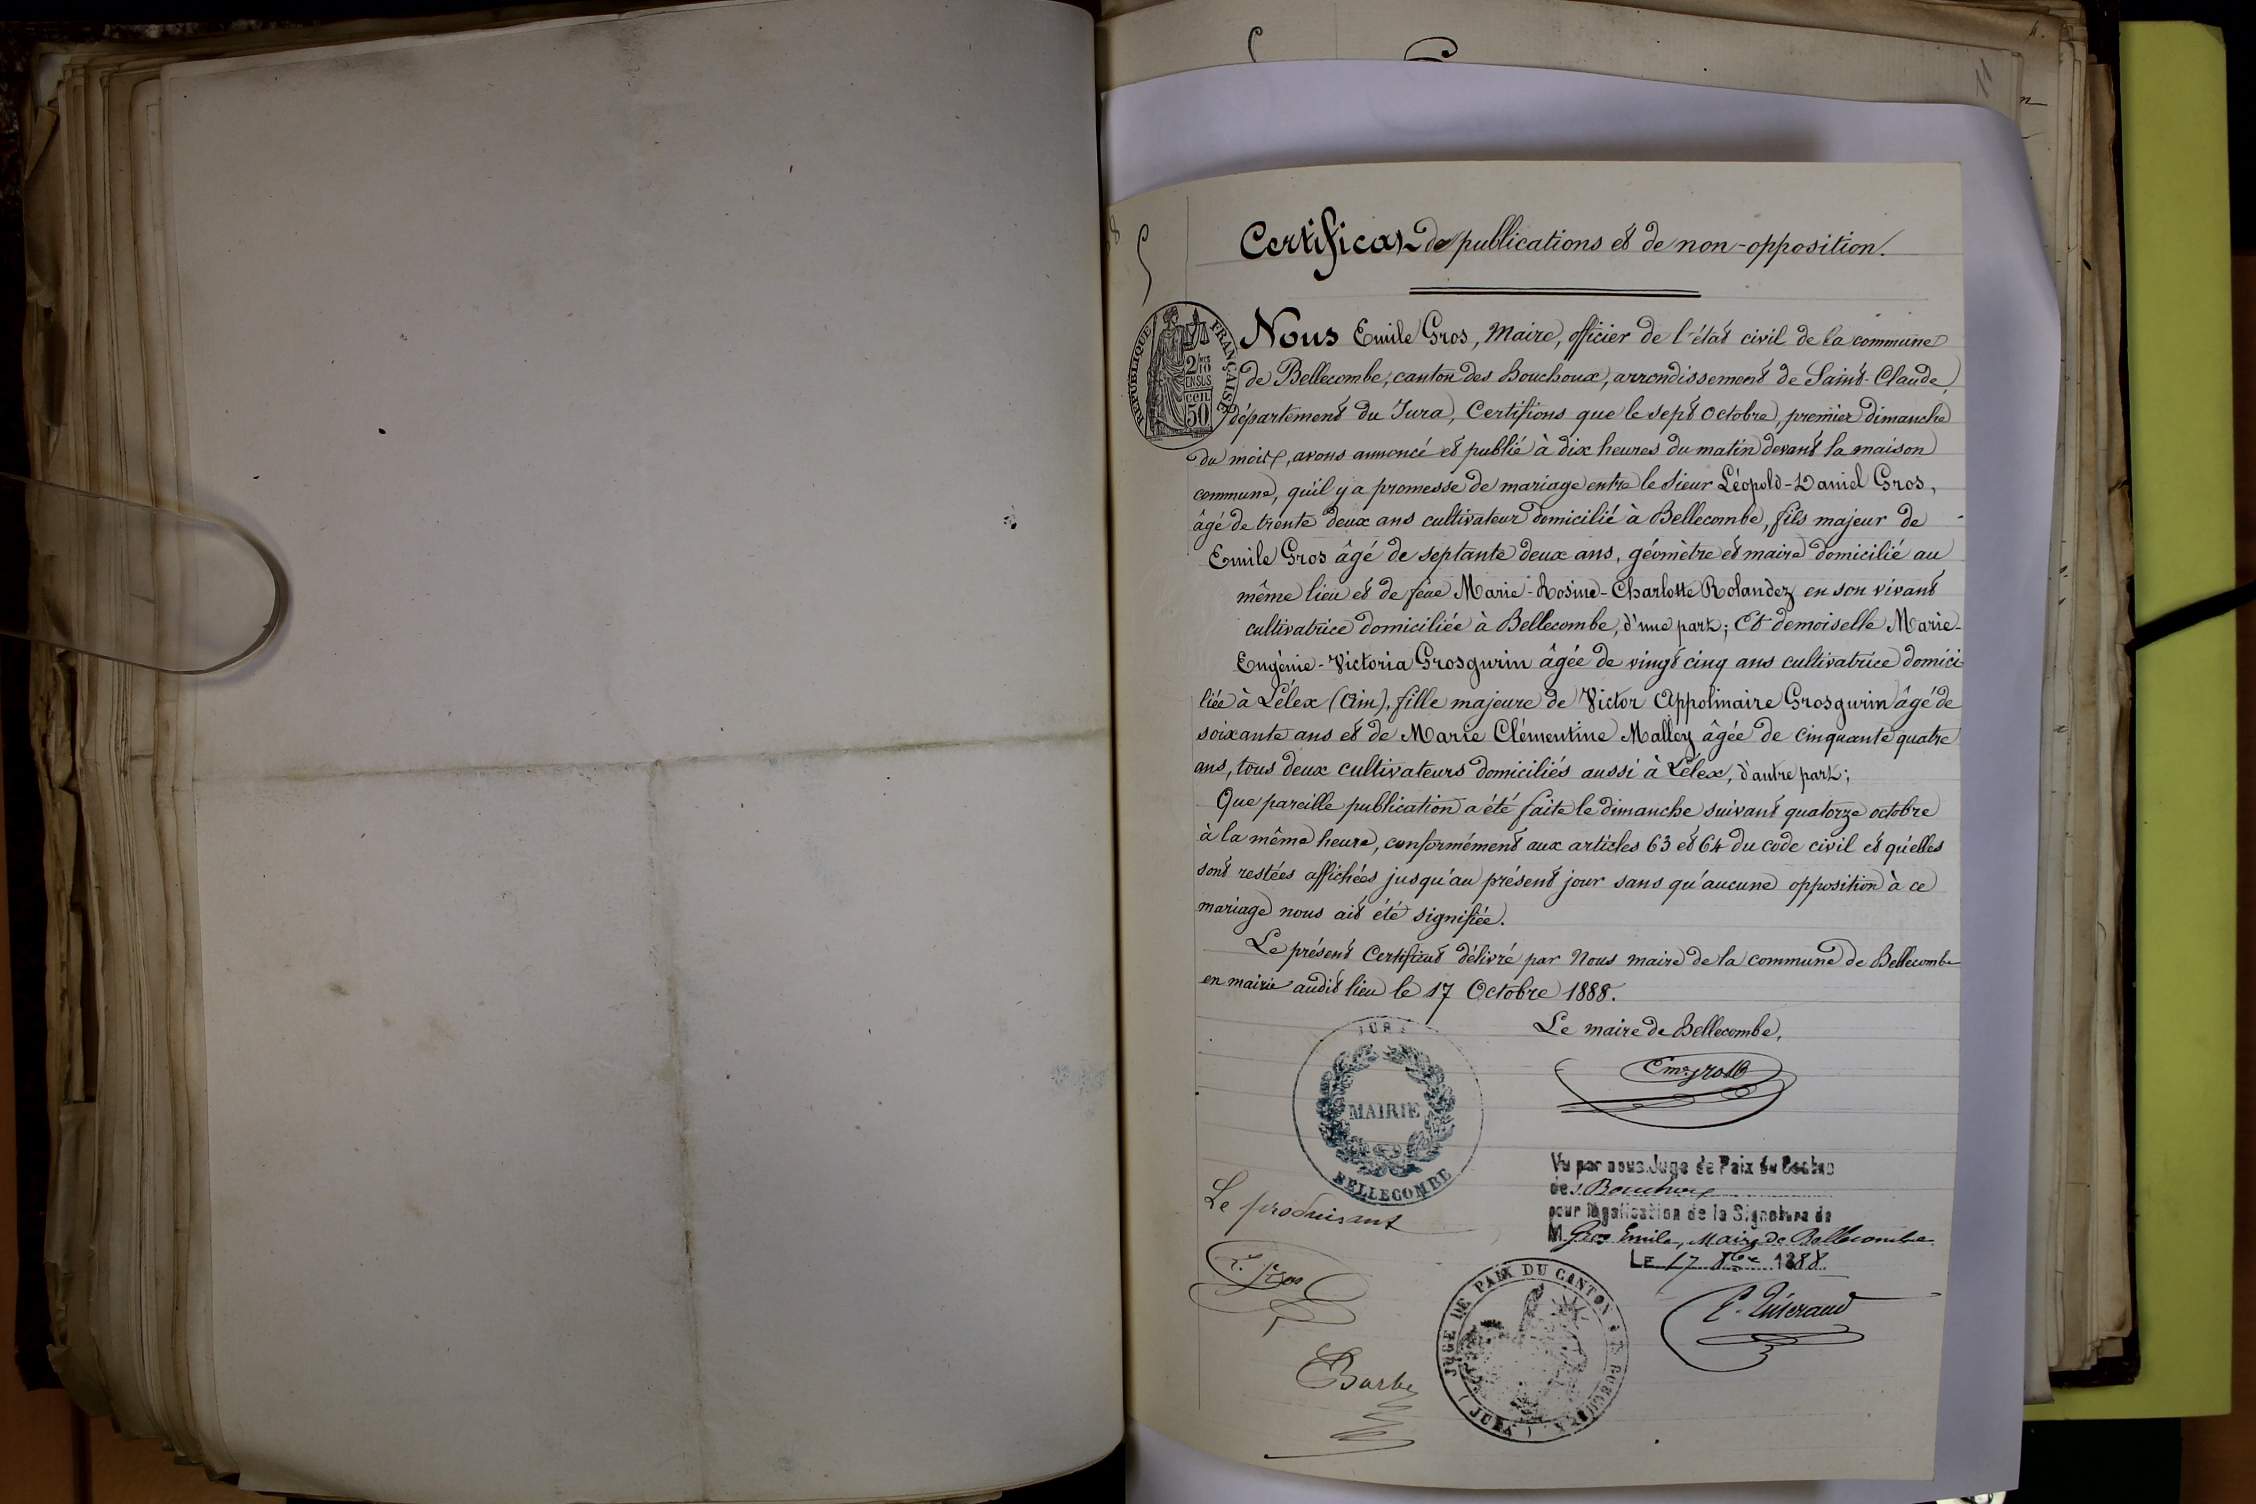 Certificat de publications et de non-opposition.
RÉPUBLIQUE FRANÇAISE
2/10
EN SUS
cen
50
Nous Emile Gros, Maire, officier de l'état civil de la commune
de Bellecombe, canton des Bouchoux, arrondissement de Saint-Claude,
département du Jura, Certifions que le sept octobre, premier dimanche
du mois, avons annoncé et publié à dix heures du matin devant la maison
commune, qu'il y a promesse de mariage entre le sieur Léopold-Daniel Gros,
âgé de trente deux ans cultivateur domicilié à Bellecombe, fils majeur de
Emile Gros âgé de septante deux ans, géomètre et maire domicilié au
même lieu et de feue Marie-Rosine-Charlotte Rolandez en son vivant
cultivatrice domiciliée à Bellecombe, d'une part; Et demoiselle Marie-
Eugénie-Victoria Grosgurin âgée de vingt cinq ans cultivatrice domici
liée à Lélex (Ain), fille majeure de Victor Appolinaire Grosgurin âgé de
soixante ans et de Marie Clémentine Malley âgée de cinquante quatre
ans, tous deux cultivateurs domiciliés aussi à Lélex, d'autre part;
Que pareille publication a été faite le dimanche suivant quatorze octobre
à la même heure, conformément aux articles 63 et 64 du code civil et qu'elles
sont restées affichées jusqu'au présent jour sans qu'aucune opposition à ce
mariage nous ait été signifiée.
Le présent Certificat délivré par Nous maire de la commune de Bellecombe
en mairie audit lieu le 17 Octobre 1888.
Le maire de Bellecombe,
JURA
MAIRIE
BELLECOMBE
Vu par nous Juge de Paix du Canton
des Bouchoux
pour légalisation de la Signature de
M. Gros Emile, Maire de Bellecombe
LE 17 8bre 1888
Le produisant
L. Gros
JUGE DE PAIX DU CANTON DES BOUCHOUX (JURA)
Barbe
11